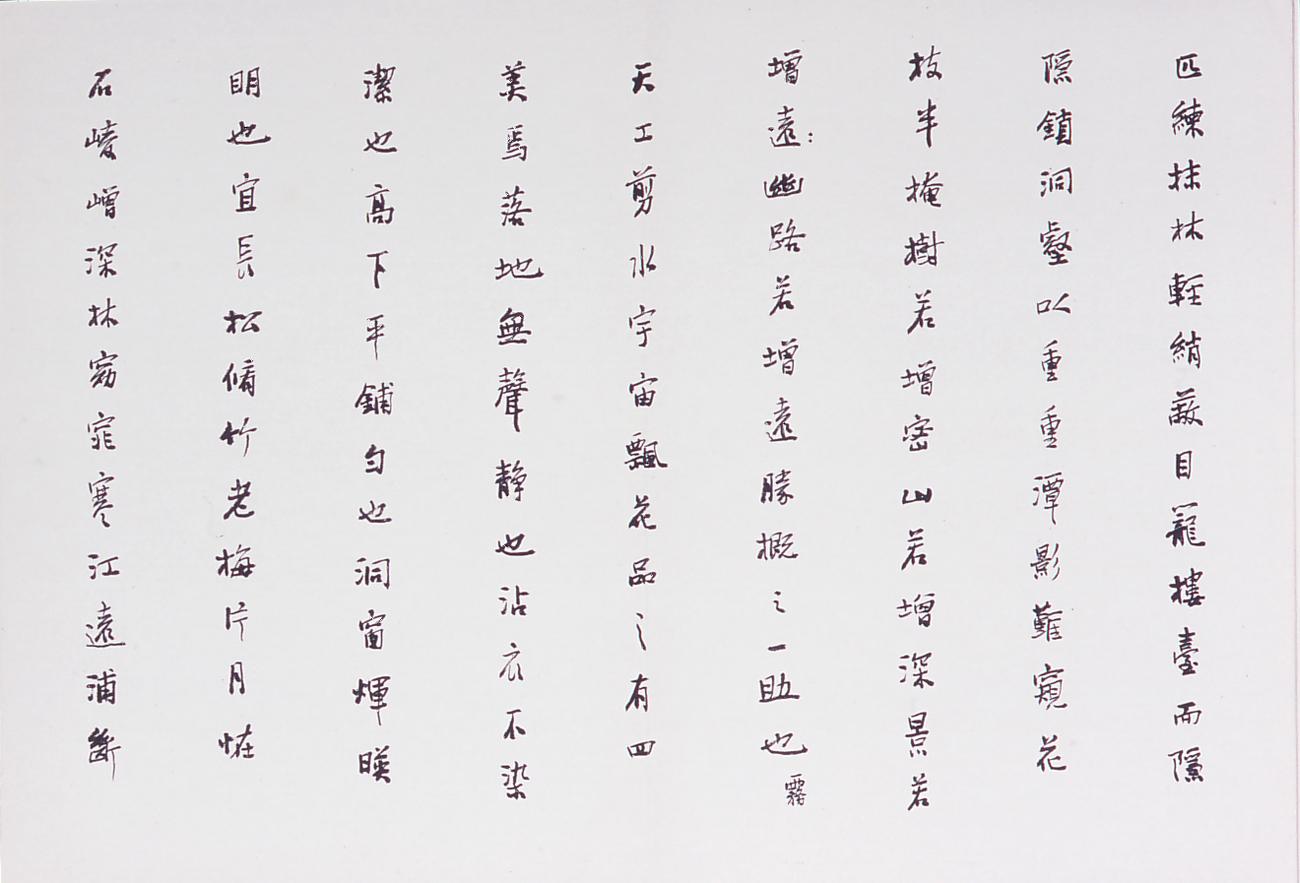 匹練抹林輕綃蔽目籠樓臺而隱
隱鎖洞壑以重重潭影難窺花
枝半掩樹若增密山若增深景若
增遠:幽路若增遠勝概之一助也霧
天工剪水宇宙飄花品之有四
美焉落地無聲靜也沾衣不染
潔也高下平鋪勻也洞窗煇映
明也宜長松脩竹老梅片月怪
石崚嶒深林窈窕寒江遠浦斷